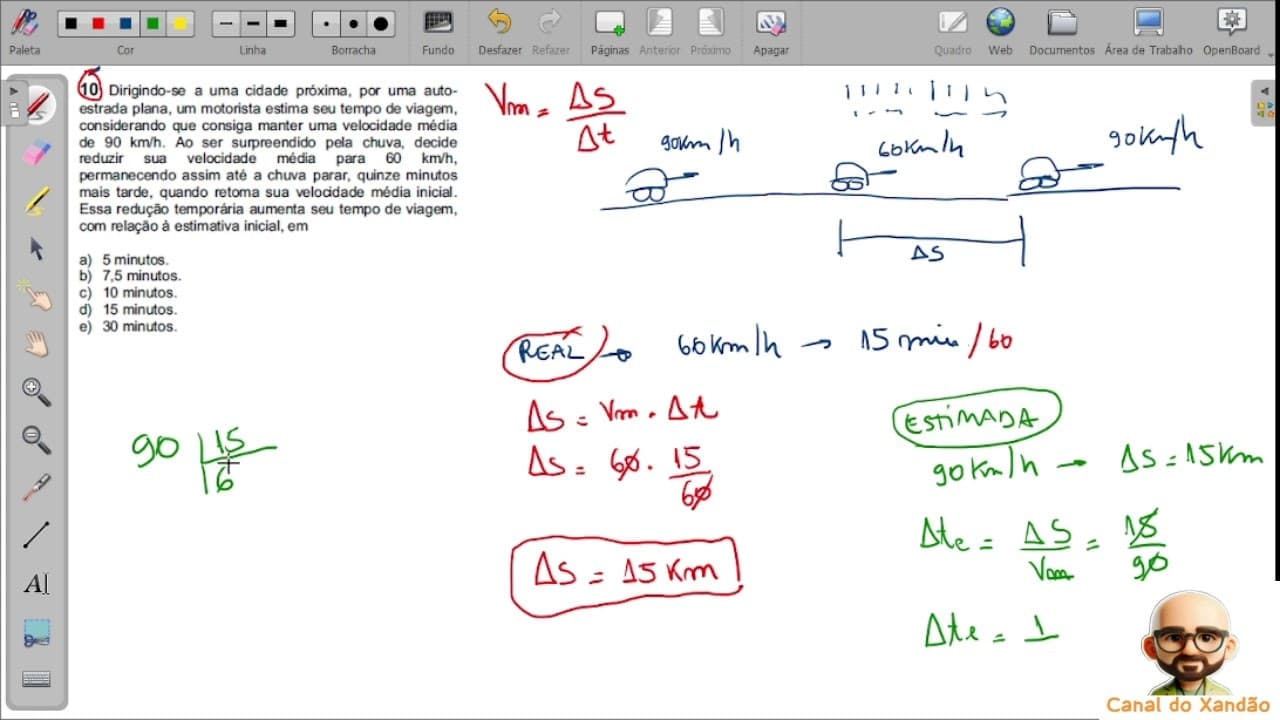 Paleta
Cor
Linha
Borracha
Fundo
Desfazer
Refazer
Páginas
Anterior
Próximo
Apagar
Quadro
Web
Documentos
Área de Trabalho
OpenBoard
10 Dirigindo-se a uma cidade próxima, por uma auto-
estrada plana, um motorista estima seu tempo de viagem,
considerando que consiga manter uma velocidade média
de 90 km/h. Ao ser surpreendido pela chuva, decide
reduzir sua velocidade média para 60 km/h,
permanecendo assim até a chuva parar, quinze minutos
mais tarde, quando retoma sua velocidade média inicial.
Essa redução temporária aumenta seu tempo de viagem,
com relação à estimativa inicial, em
a) 5 minutos.
b) 7,5 minutos.
c) 10 minutos.
d) 15 minutos.
e) 30 minutos.
Vm = ΔS/Δt
90km/h
60km/h
90km/h
ΔS
REAL → 60km/h → 15 min /60
ΔS = Vm . Δt
ΔS = 60 . 15/60
ΔS = 15 Km
ESTIMADA
90km/h → ΔS = 15km
Δte = ΔS/Vm = 15/90
Δte = 1
90 15
6
AI
Canal do Xandão